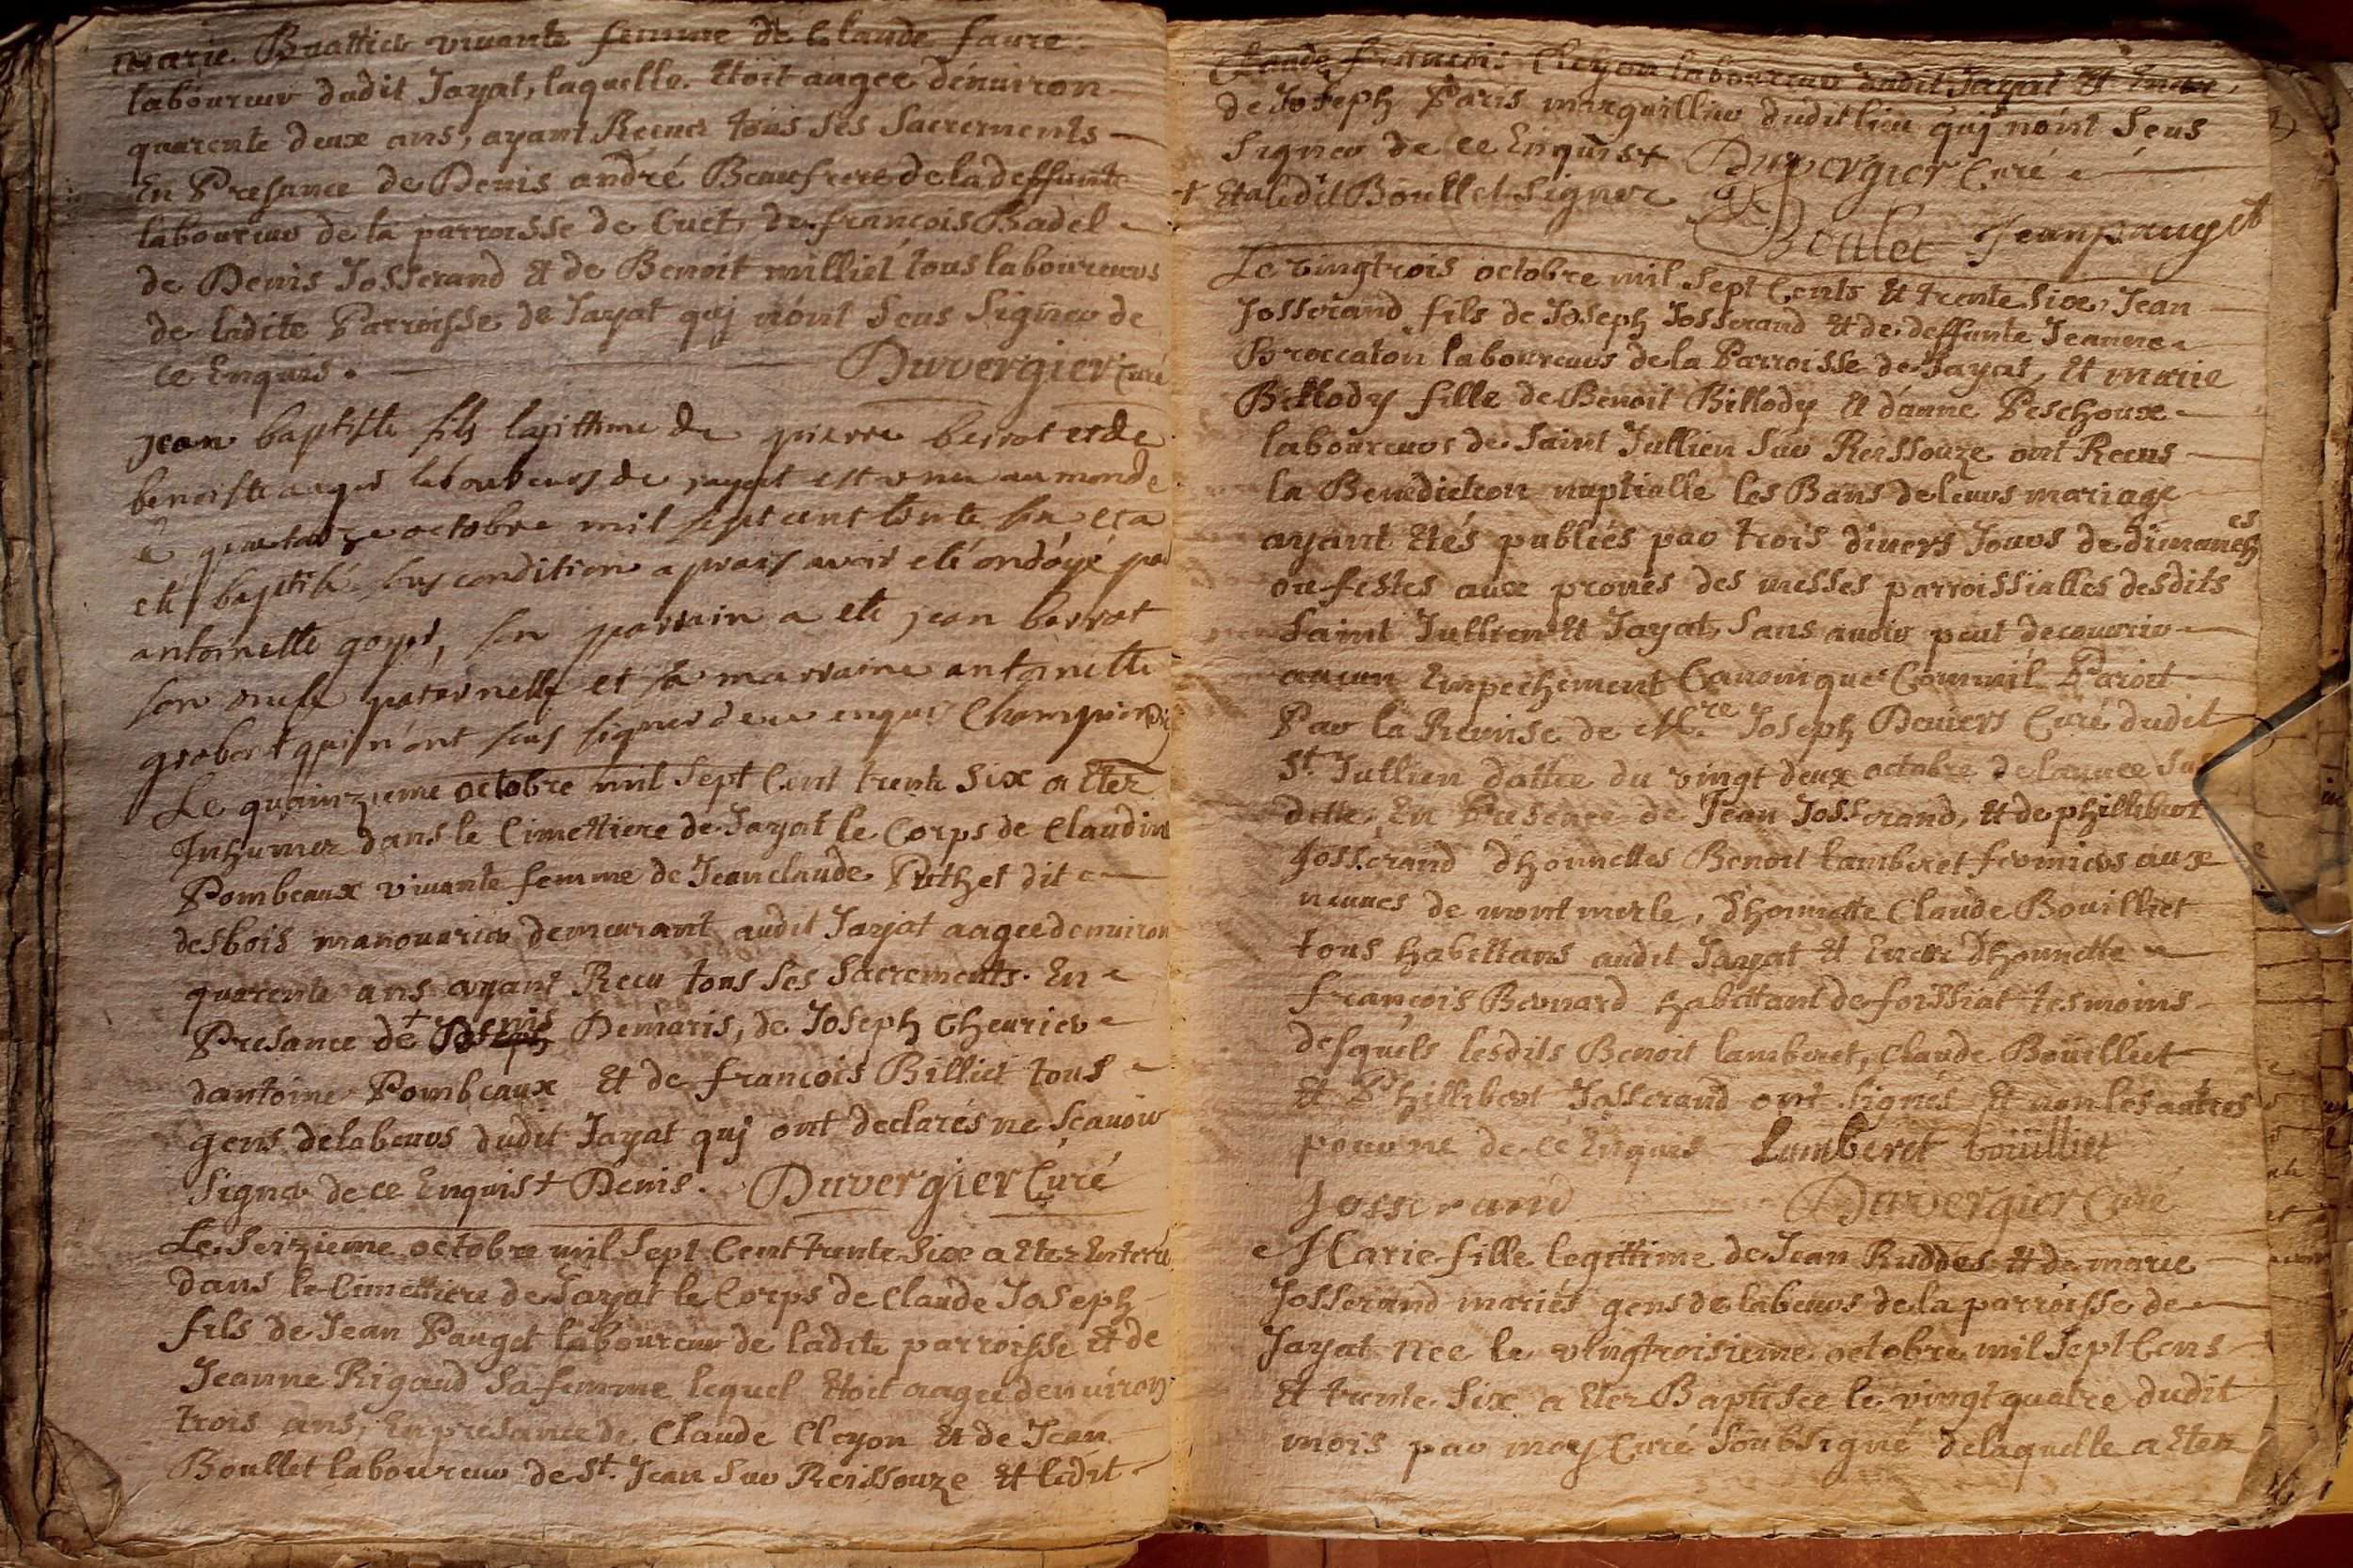 marie Buattier vivante femme de Claude faure
laboureur dudit Jayat, laquelle Etoit angee denuiron
quarente deux ans, ayant Receu tous ses Sacrements
En Presance de Denis andré Beaufrere de la deffunte
laboureur de la parroisse de Cuet, de francois Badel
de Denis Josserand Et de Benoit milliet tous laboureurs
de ladite Parroisse de Jayat quj nónt Sçus Signer de
ce Enquis. Duvergier Curé
jean baptiste fils lagittime de pierre berrot et de
benoiste auger laboureurs de jayat est venu au monde
le quatorze octobre mil sept cent trente six et a
eté baptisé sous condition aprais avoir eté ondoyé par
antoinette goyet, son parrain a eté jean berrot
son oncle paternelle et sa marraine antoinette
grobert qui n'ont sçus signer de ce enquis Champion
Le quainzieme octobre mil Sept Cent trente Six a Eter
Inhumer dans le Cimettiere de Jayat le Corps de Claudine
Pombeaux vivante femme de Jean claude Puthet dit
desbois manouvrier demeurant audit Jayat aagee denuiron
quarente ans ayant Recu tous ses Sacrements. En
Presance de + Denis Demaris, de Joseph Cheurier
dantoine Pombeaux Et de francois Billiet tous
gens de labeurs dudit Jayat quj ont declarés ne Sçauoir
Signer de ce Enquis + Denis. Duvergier Curé
Le Seizieme octobre mil Sept Cent trente Six a Eter Enterré
dans le Cimettiere de Jayat le Corps de Claude Joseph
fils de Jean Pauget laboureur de ladite parroisse Et de
Jeanne Rigaud Sa femme lequel Etoit aagee denuiron
trois ans, En presance de Claude Cleyon Et de Jean
Boullet laboureur de St. Jean Sur Reissouze Et ledit
Claude francois Cleyon laboureur dudit Jayat Et Encor
de Joseph Paris marguillier dudit lieu quj nónt Sçus
Signer de ce Enquis + Duvergier Curé
+ Et a ledit Boullet Signer
Boulet Jean pauget
Le vingtrois octobre mil Sept Cents Et trente Six, Jean
Josserand fils de Joseph Josserand Et de deffunte Jeanne
Broccaton laboureurs de la Parroisse de Jayat, Et marie
Billody fille de Benoit Billody Et danne Peschoux
laboureurs de Saint Jullien Sur Reissouze ont Receus
la Benediction nuptialle les Bans de leurs mariage
ayant Etés publiés par trois divers Jours de dimanches
ou festes aux prones des messes parroissialles desdits
Saint Jullien Et Jayat, Sans auoir peut decouurir
aucun Empechement Canonique Commil Paroit
Par la Remise de Mre. Joseph Deuiers Curé dudit
St. Jullien dattee du vingt deux octobre de lannee Sus
ditte, En Presence de Jean Josserand, Et de phillibert
Josserand dhonnettes Benoit lamberet fermiers aux
neuues de mont merle, dhonnette Claude Bouilliet
tous habittans audit Jayat Et Encor dhonnette
francois Bernard habittant de foissiat tesmoins
desquels lesdits Benoit lamberet, Claude Boüilliet
Et Phillibert Josserand ont Signés Et non les autres
pour ne de ce Enquis Lamberet boüilliet
Josserand Duvergier Curé
Marie fille legittime de Jean Ruddes Et de marie
Josserand mariés gens de labeurs de la parroisse de
Jayat Nee le vingtroisieme octobre mil Sept Cens
Et trente Six a Eter Baptisee le vingt quatre dudit
mois par moy Curé Soubsigné delaquelle a Eter